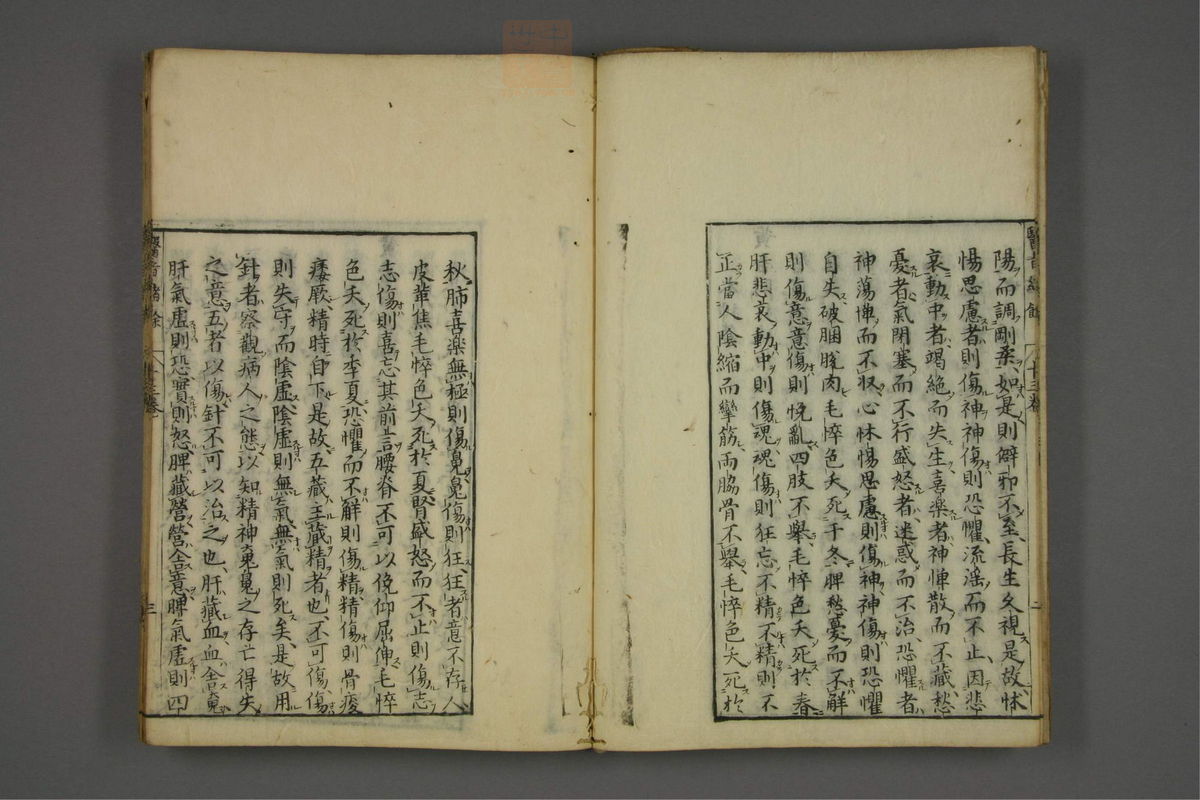 陽而調剛柔如是則僻邪不至長生久視是故怵
惕思慮者則傷神神傷則恐懼流淫而不止因悲
哀動中者竭絶而失生喜楽者神憚散而不藏愁
憂者氣閉塞而不行盛怒者迷惑而不治恐懼者
神蕩憚而不収心怵惕思慮則傷神神傷則恐懼
自失破䐃脫肉毛悴色夭死于冬脾愁憂而不解
則傷意意傷則悗亂四肢不舉毛悴色夭死於春
肝悲哀動中則傷魂魂傷則狂忘不精不精則不
正當人陰縮而攣筋両脇骨不舉毛悴色夭死於
秋肺喜楽無極則傷䰟䰟傷則狂狂者意不存人
皮革焦毛悴色夭死於夏腎盛怒而不止則傷志
志傷則喜忘其前言腰脊不可以俛仰屈伸毛悴
色夭死於季夏恐懼而不解則傷精精傷則骨痠
痿厥精時自下是故五藏主藏精者也不可傷傷
則失守而陰虛陰虛則無氣無氣則死矣是故用
針者察觀病人之態以知精神䰟魄之存亡得失
之意五者以傷針不可以治之也肝藏血血舎䰟
肝氣虛則恐實則怒脾藏營營舎意脾氣虛則四